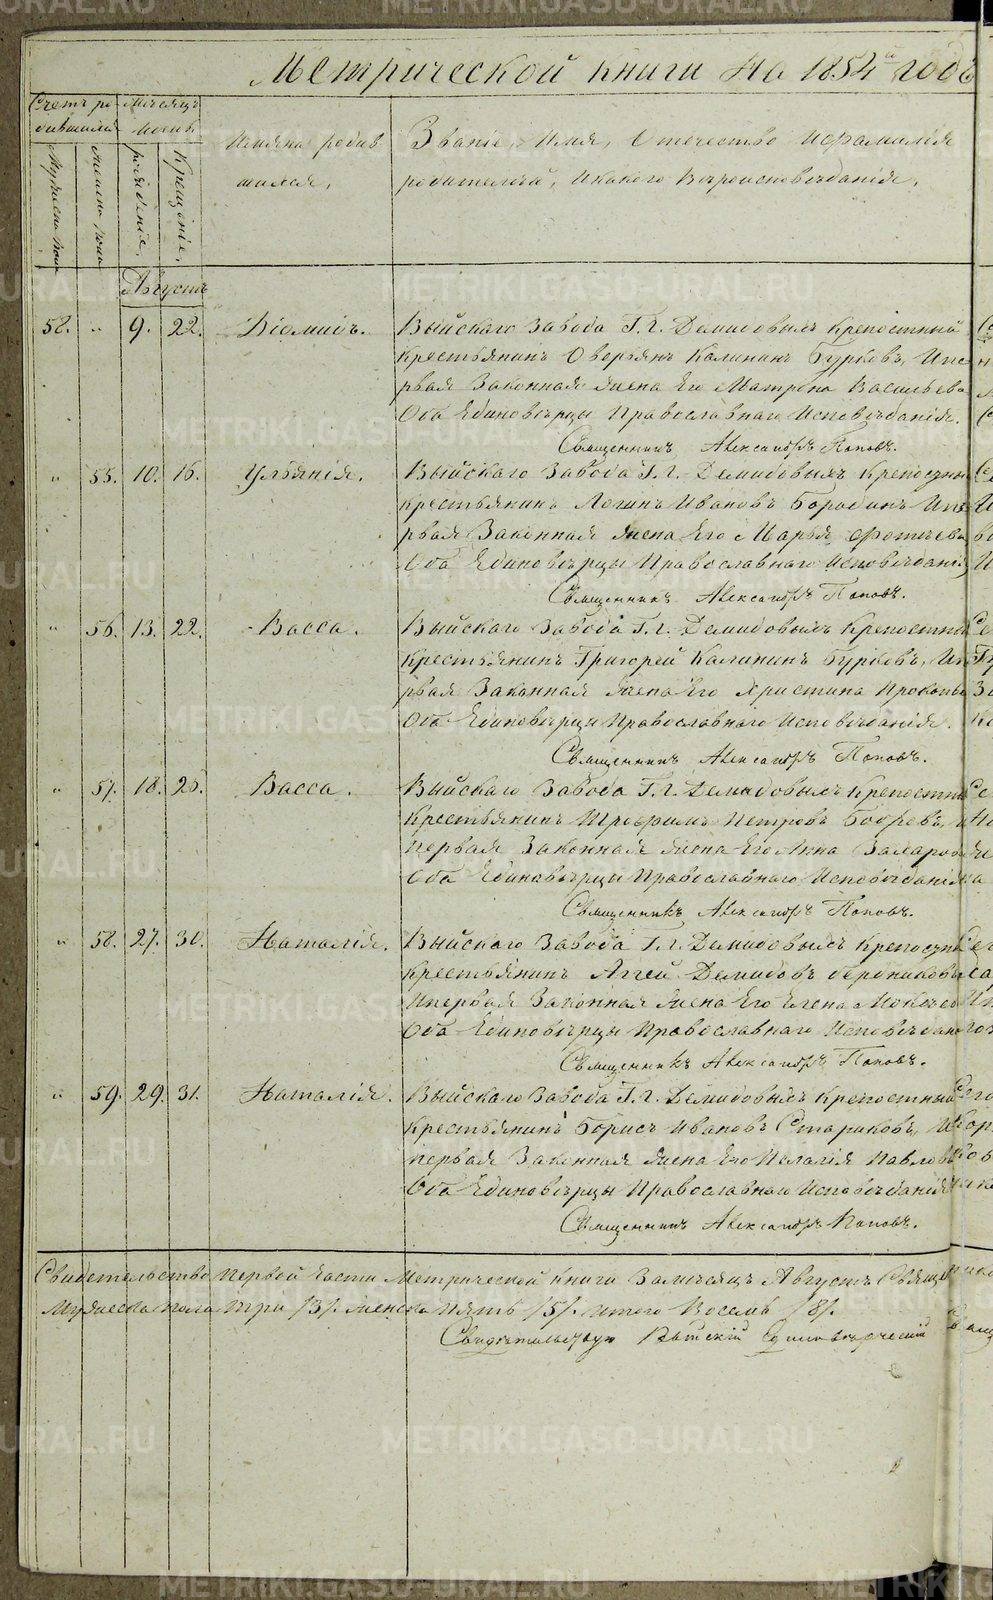 Метрической книги на 1854й годъ
Счетъ ро
дившихся
Мужеска пола
Женска пола
Месяцъ
рождение,
Крещение,
Имяна родив
шихся,
Звание, Имя, Отчество и фамилия
родителей, и какого Вероисповѣдания,
Августъ
52. „ 9. 22. Диомидъ. Выйскаго Завода Г.Г. Демидовыхъ Крепостный
крестьянинъ Оверьянъ Калининъ Бурковъ, Ипе
рвая Законная жена Его Матрона Васильева
Оба Единовѣрцы Православнаго Исповѣдания.
Священникъ Александръ Поповъ.
„ 55. 10. 16. Ульяния. Выйскаго Завода Г.Г. Демидовыхъ Крепостны
крестьянинъ Логинъ Ивановъ Бородинъ Ипе
рвая Законная жена Его Марья Фотиева
Оба Единовѣрцы Православнаго Исповѣдания
Священникъ Александръ Поповъ.
„ 56. 13. 22. Васса. Выйскаго Завода Г.Г. Демидовыхъ Крепостный
Крестьянинъ Григорей Калининъ Бурковъ, Ипе
рвая Законная жена Его Христина Прокопье
Оба Единовѣрцы Православнаго Исповѣдания.
Священникъ Александръ Поповъ.
„ 57. 18. 25. Васса. Выйскаго Завода Г.Г. Демидовыхъ Крепостны
Крестьянинъ Трофимъ Петровъ Бобровъ, и
первая Законная жена Его Анна
Оба Единовѣрцы Православнаго Исповѣдания
Священникъ Александръ Поповъ.
„ 58. 27. 30. Наталия. Выйскаго Завода Г.Г. Демидовыхъ Крепостны
крестьянинъ Аггей Демидовъ
Ипервая Законная жена Его Елена Мокѣев
Оба Единовѣрцы Православнаго Исповѣдан
Священникъ Александръ Поповъ.
„ 59. 29. 31. Наталия. Выйскаго Завода Г.Г. Демидовыхъ Крепостный
Крестьянинъ Борисъ Ивановъ Стариковъ, И
первая Законная жена Его Пелагия Павлов
Оба Единовѣрцы Православнаго Исповѣдания
Священникъ Александръ Поповъ.
Свидетельство первой части Метрической книги За месяцъ Августъ Свяще
Мужеска пола три /3/. женска пять /5/. итого Восемь /8/.
Свидѣтельствую Выйский Единовѣрческий
METRIKI.GASO-URAL.RU